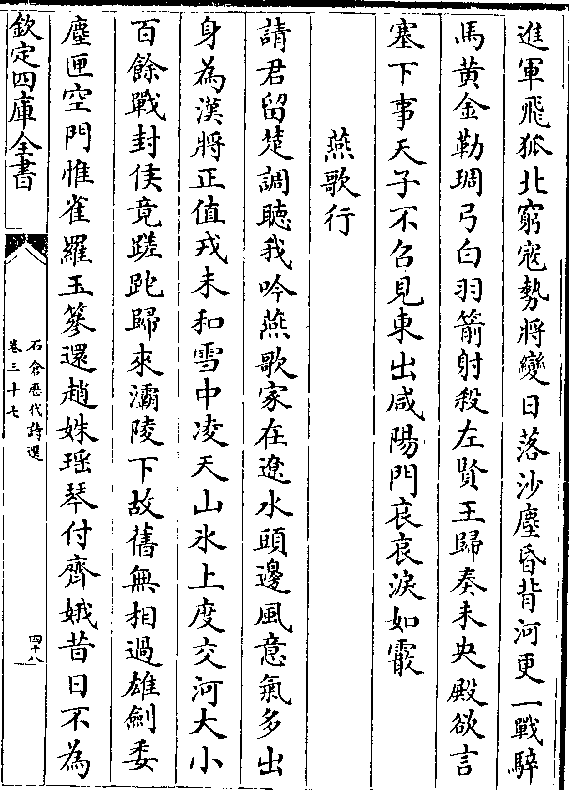 進軍飛狐北窮寇勢將變日落沙塵昏背河更一戰騂
馬黄金勒琱弓白羽箭射殺左賢王歸奏未央殿欲言
塞下事天子不召見東出咸陽門哀哀淚如霰
燕歌行
請君留楚調聽我吟燕歌家在遼水頭邊風意氣多出
身為漢將正值戎未和雪中凌天山氷上度交河大小
百餘戰封侯竟蹉跎歸來灞陵下故舊無相過雄劍委
塵匣空門惟雀羅玉簪還趙姝瑶琴付齊娥昔日不為
欽定四庫全書
石倉歷代詩選
卷三十七
四十八